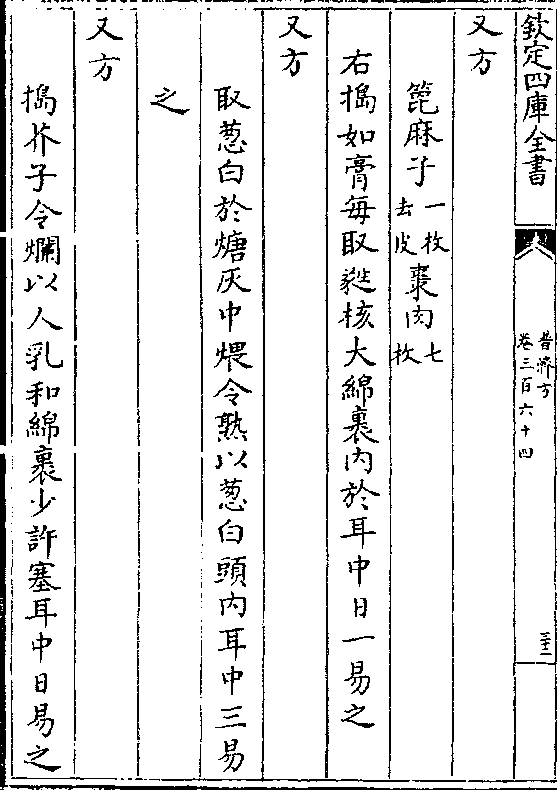 欽定四庫全書
普濟方
卷三百六十四
三十二
又方
篦麻子一枚去皮棗肉七枚
右搗如膏每取如棗核大綿裹内於耳中日一易之
又方
取葱白於煻灰中煨令熟以葱白頭内耳中三易
之
又方
搗芥子令爛以人乳和綿裹少許塞耳中日易之